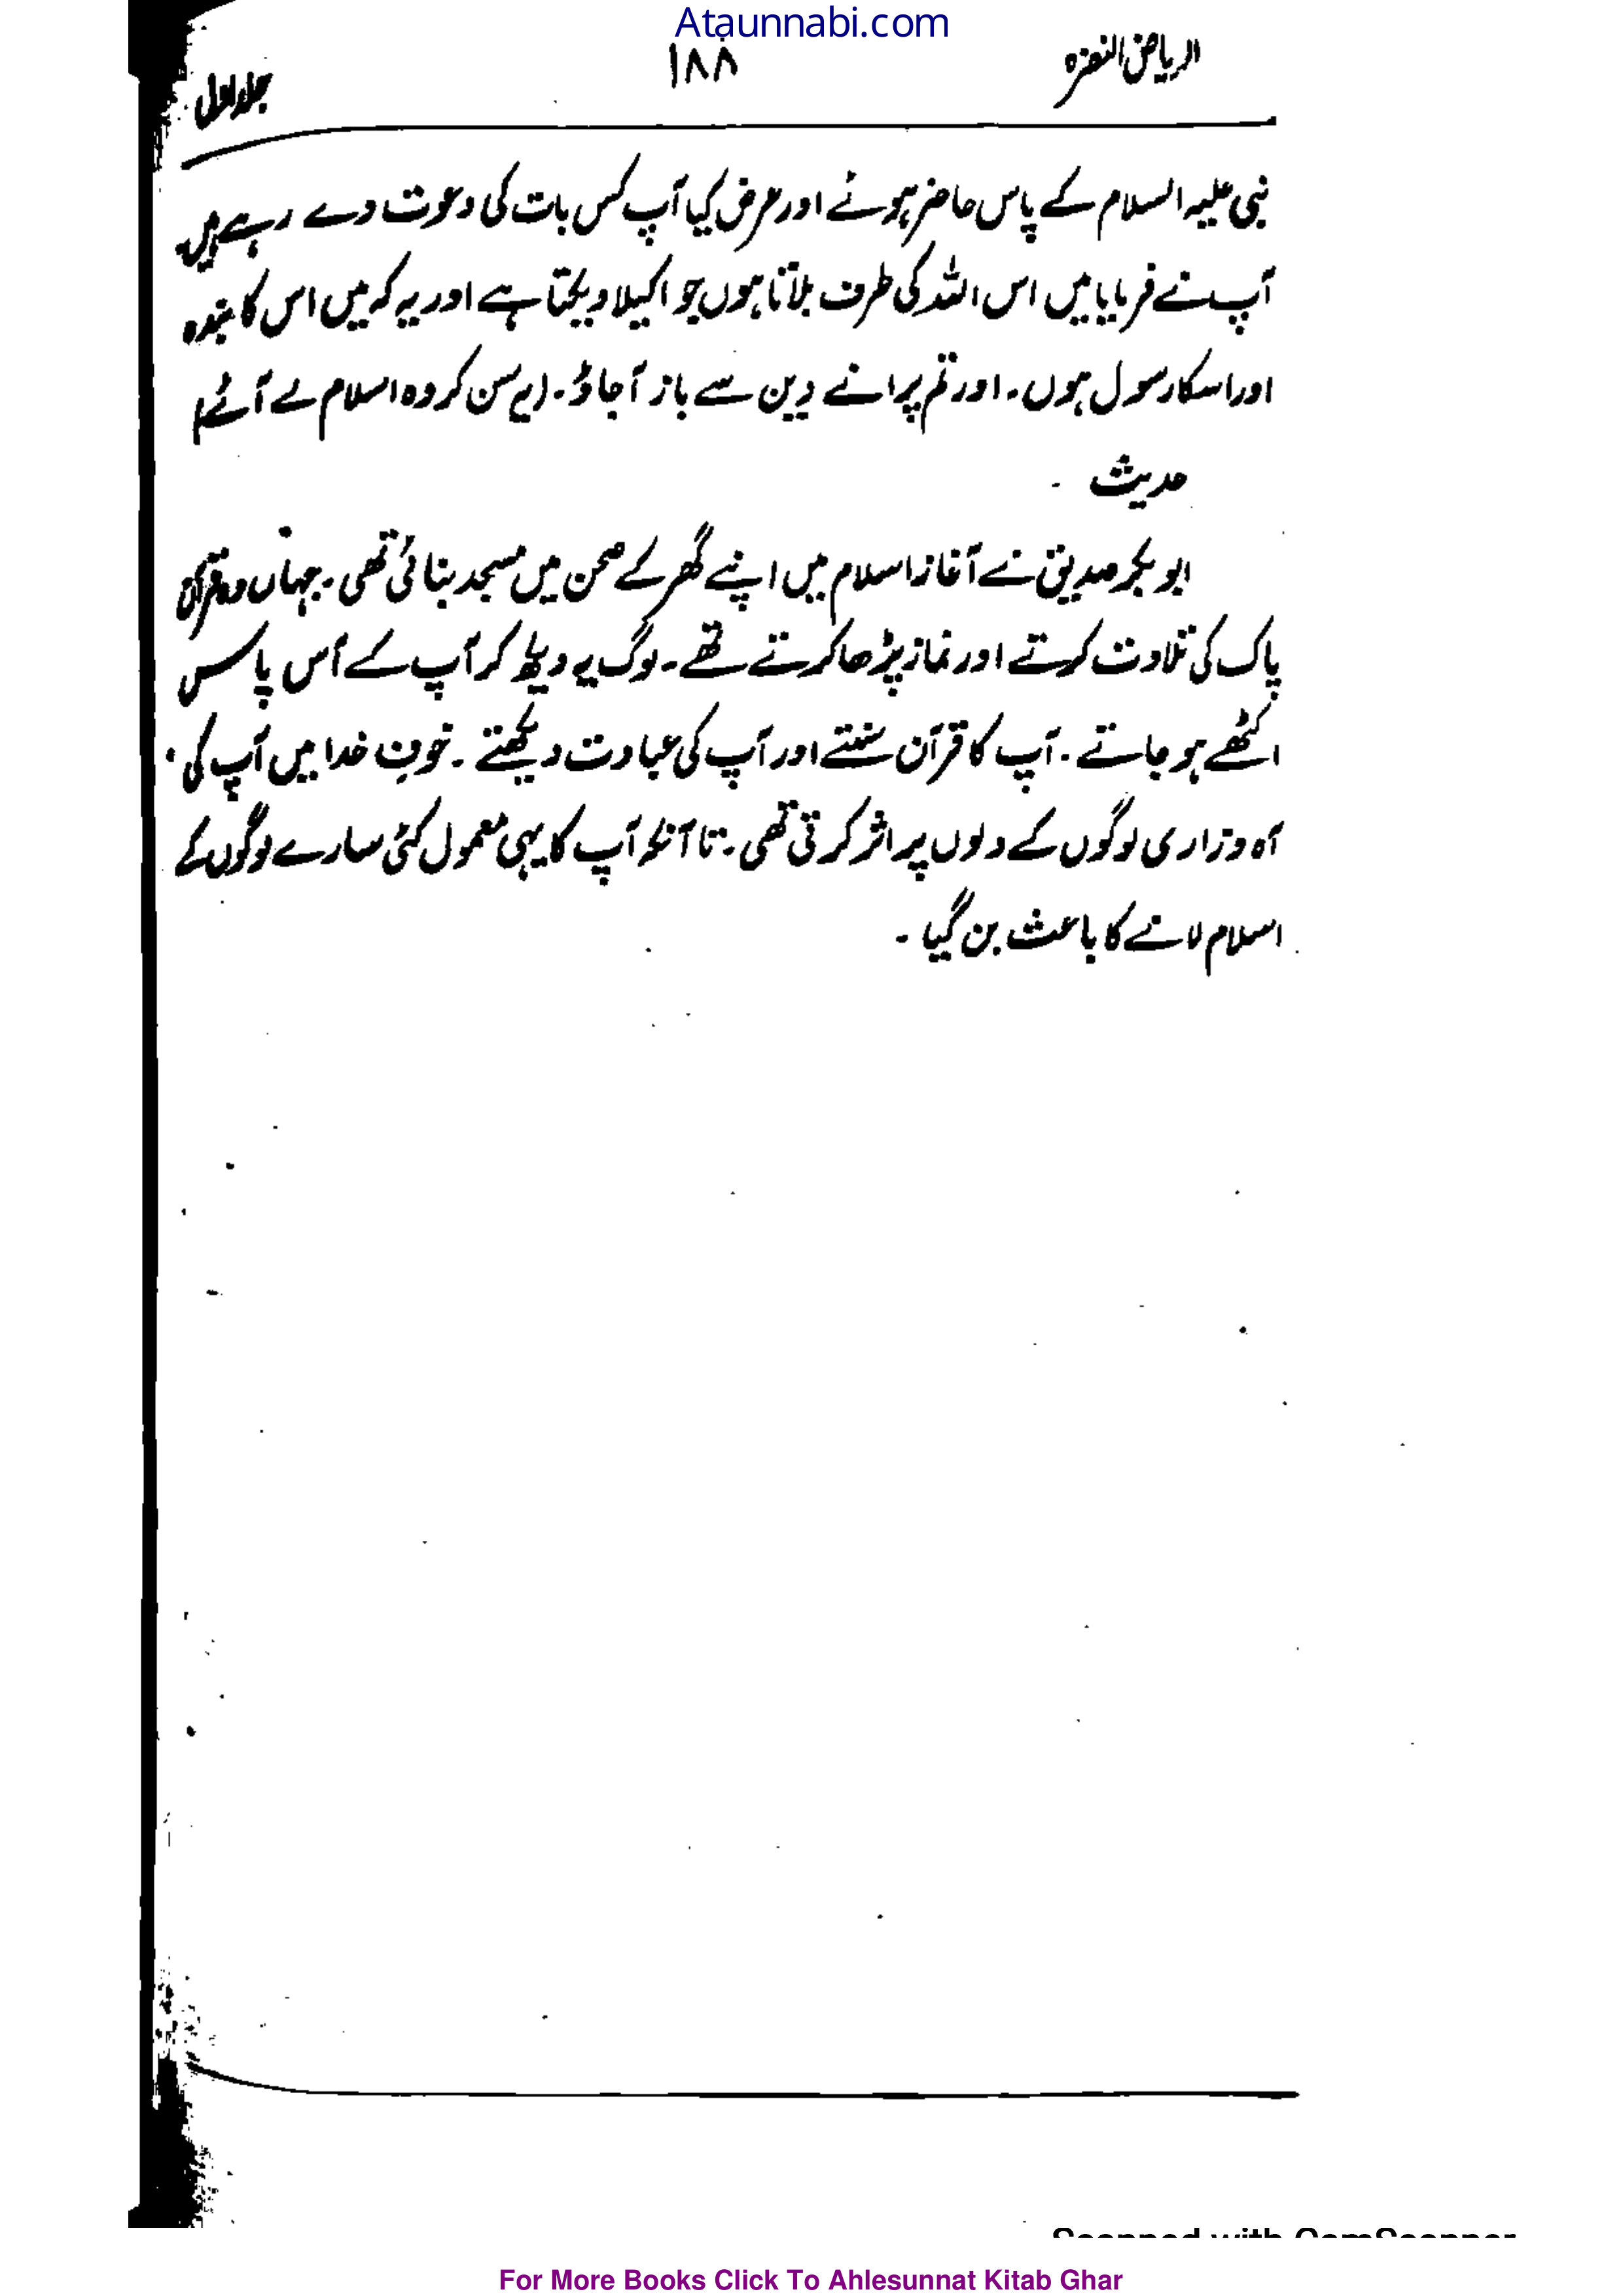 Ataunnabi.com
الریاض النضرہ
۱۸۸
جلد اول
نبی علیہ السلام کے پاس حاضر ہوئے اور عرض کیا آپ کس بات کی دعوت دے رہے ہیں۔
آپ نے فرمایا میں اس اللہ کی طرف بلاتا ہوں جو اکیلا ویکتا ہے اور یہ کہ میں اس کا بندہ
اور اسکا رسول ہوں۔ اور تم پرانے دین سے باز آجاؤ۔ (یہ سن کر وہ اسلام لے آئے)
حدیث -
ابو بکر صدیق نے آغاز اسلام میں اپنے گھر کے صحن میں مسجد بنائی تھی۔ جہاں وہ قرآن
پاک کی تلاوت کرتے اور نماز پڑھا کرتے تھے۔ لوگ یہ دیکھ کر آپ کے آس پاس
اکٹھے ہو جاتے۔ آپ کا قرآن سنتے اور آپ کی عبادت دیکھتے۔ خوفِ خدا میں آپ کی
آہ وزاری لوگوں کے دلوں پر اثر کرتی تھی۔ تا آنکہ آپ کا یہی معمول کئی سارے لوگوں کے
اسلام لانے کا باعث بن گیا۔
Scanned with CamScanner
For More Books Click To Ahlesunnat Kitab Ghar